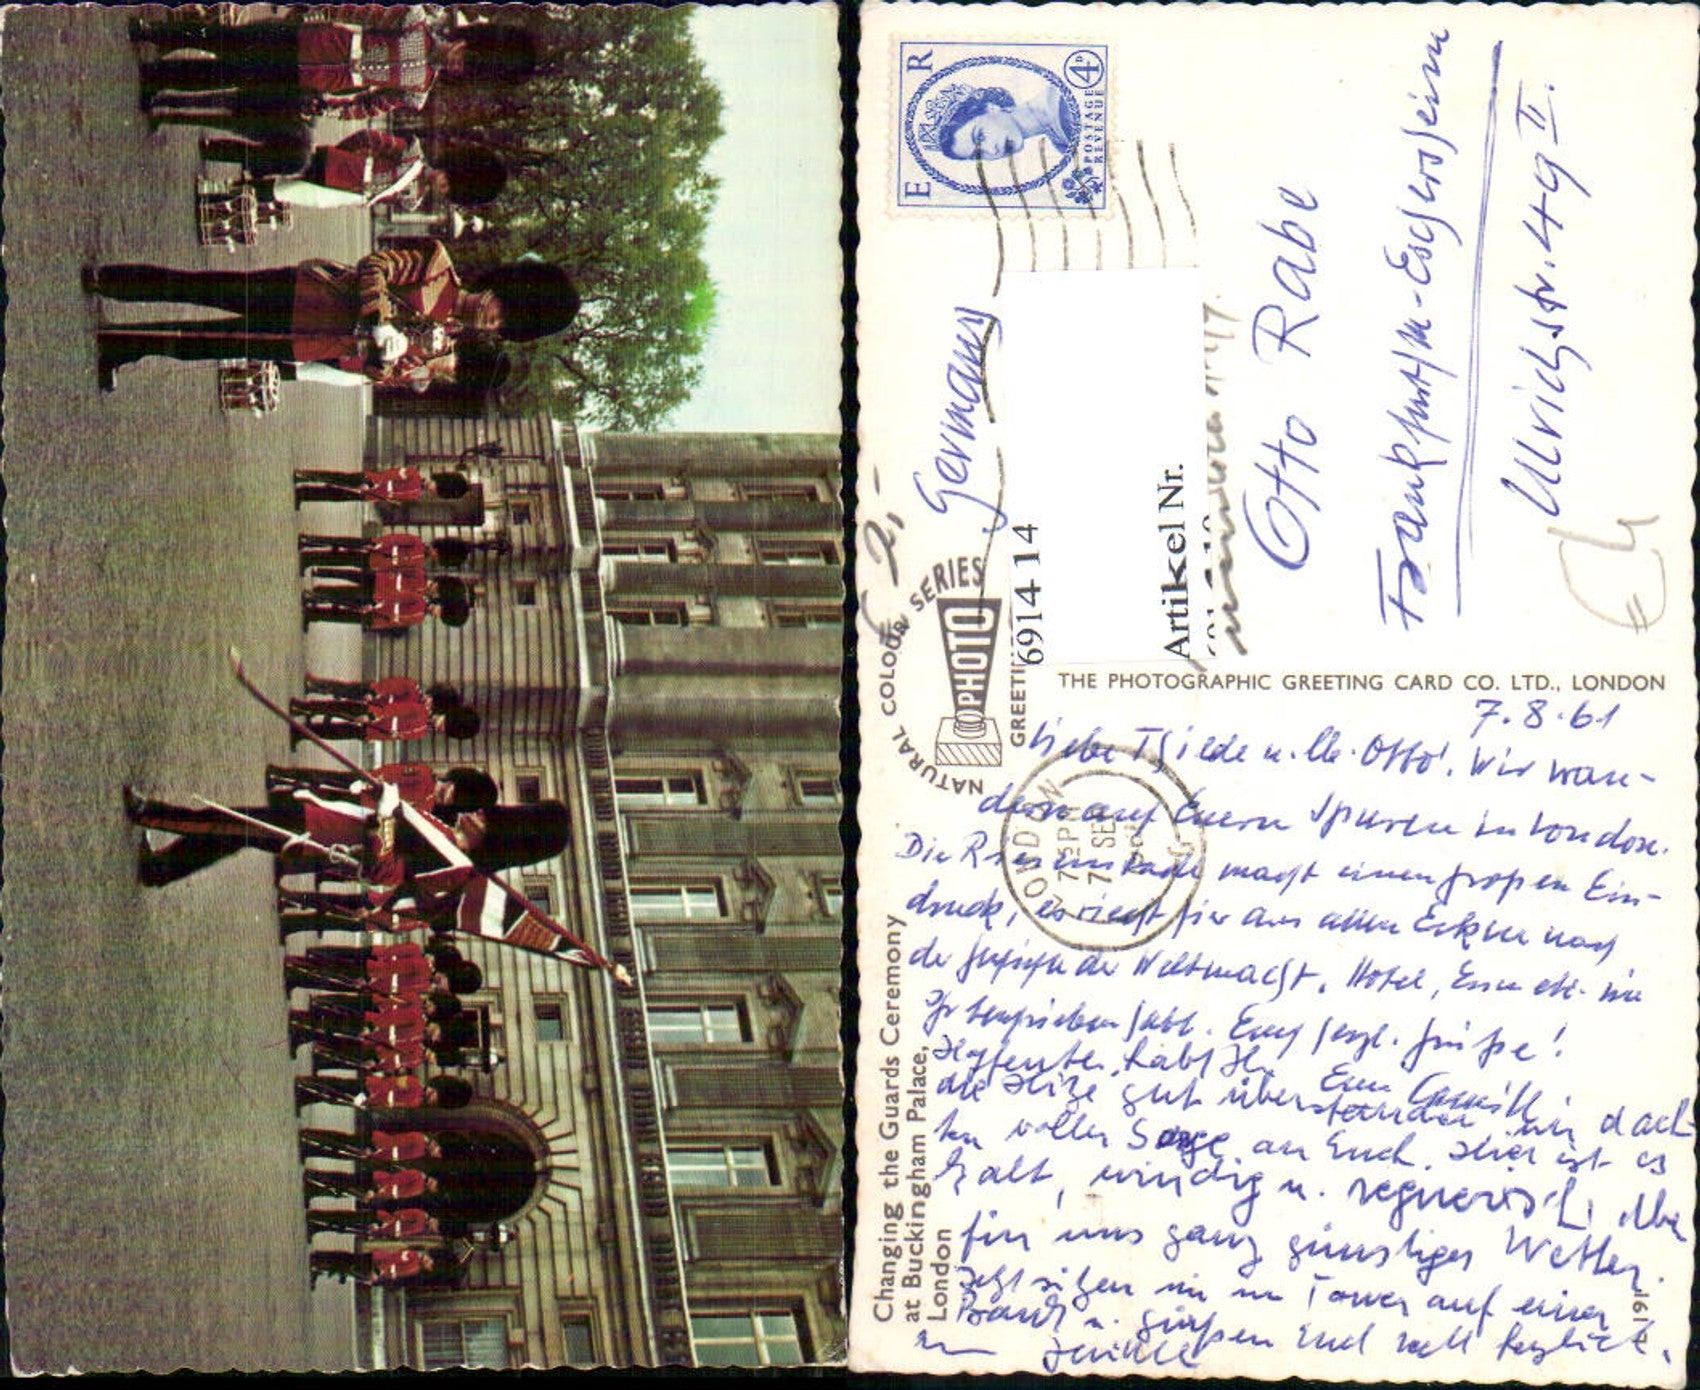 E R
POSTAGE
REVENUE
4D
Germany
Otto Rabe
Frankfurt/M-Eschersheim
Ulrichstr. 49 II.
2,-
6914 14
Artikel Nr.
NATURAL COLOUR SERIES
PHOTO
GREETI
THE PHOTOGRAPHIC GREETING CARD CO. LTD., LONDON
LONDON
7 SE
7.8.61
Liebe u. Otto! Wir wan-
dern auf Euern Spuren in London.
Die Riesenstadt macht einen großen Ein-
druck, es riecht hier aus allen Ecken nach
der Geschichte der Weltmacht. Hotel, Essen etc. wie
Ihr beschrieben habt. Euch herzl. Grüße!
Hoffentl. habt Ihr
die Hitze gut überstanden wir dach-
ten voller Sorge an Euch. Hier ist es
kalt, windig u. regnerisch. Aber
für uns ganz günstiges Wetter.
Jetzt sitzen wir im Tower auf einer
Bank u. grüßen Euch
Changing the Guards Ceremony
at Buckingham Palace,
London
L 191